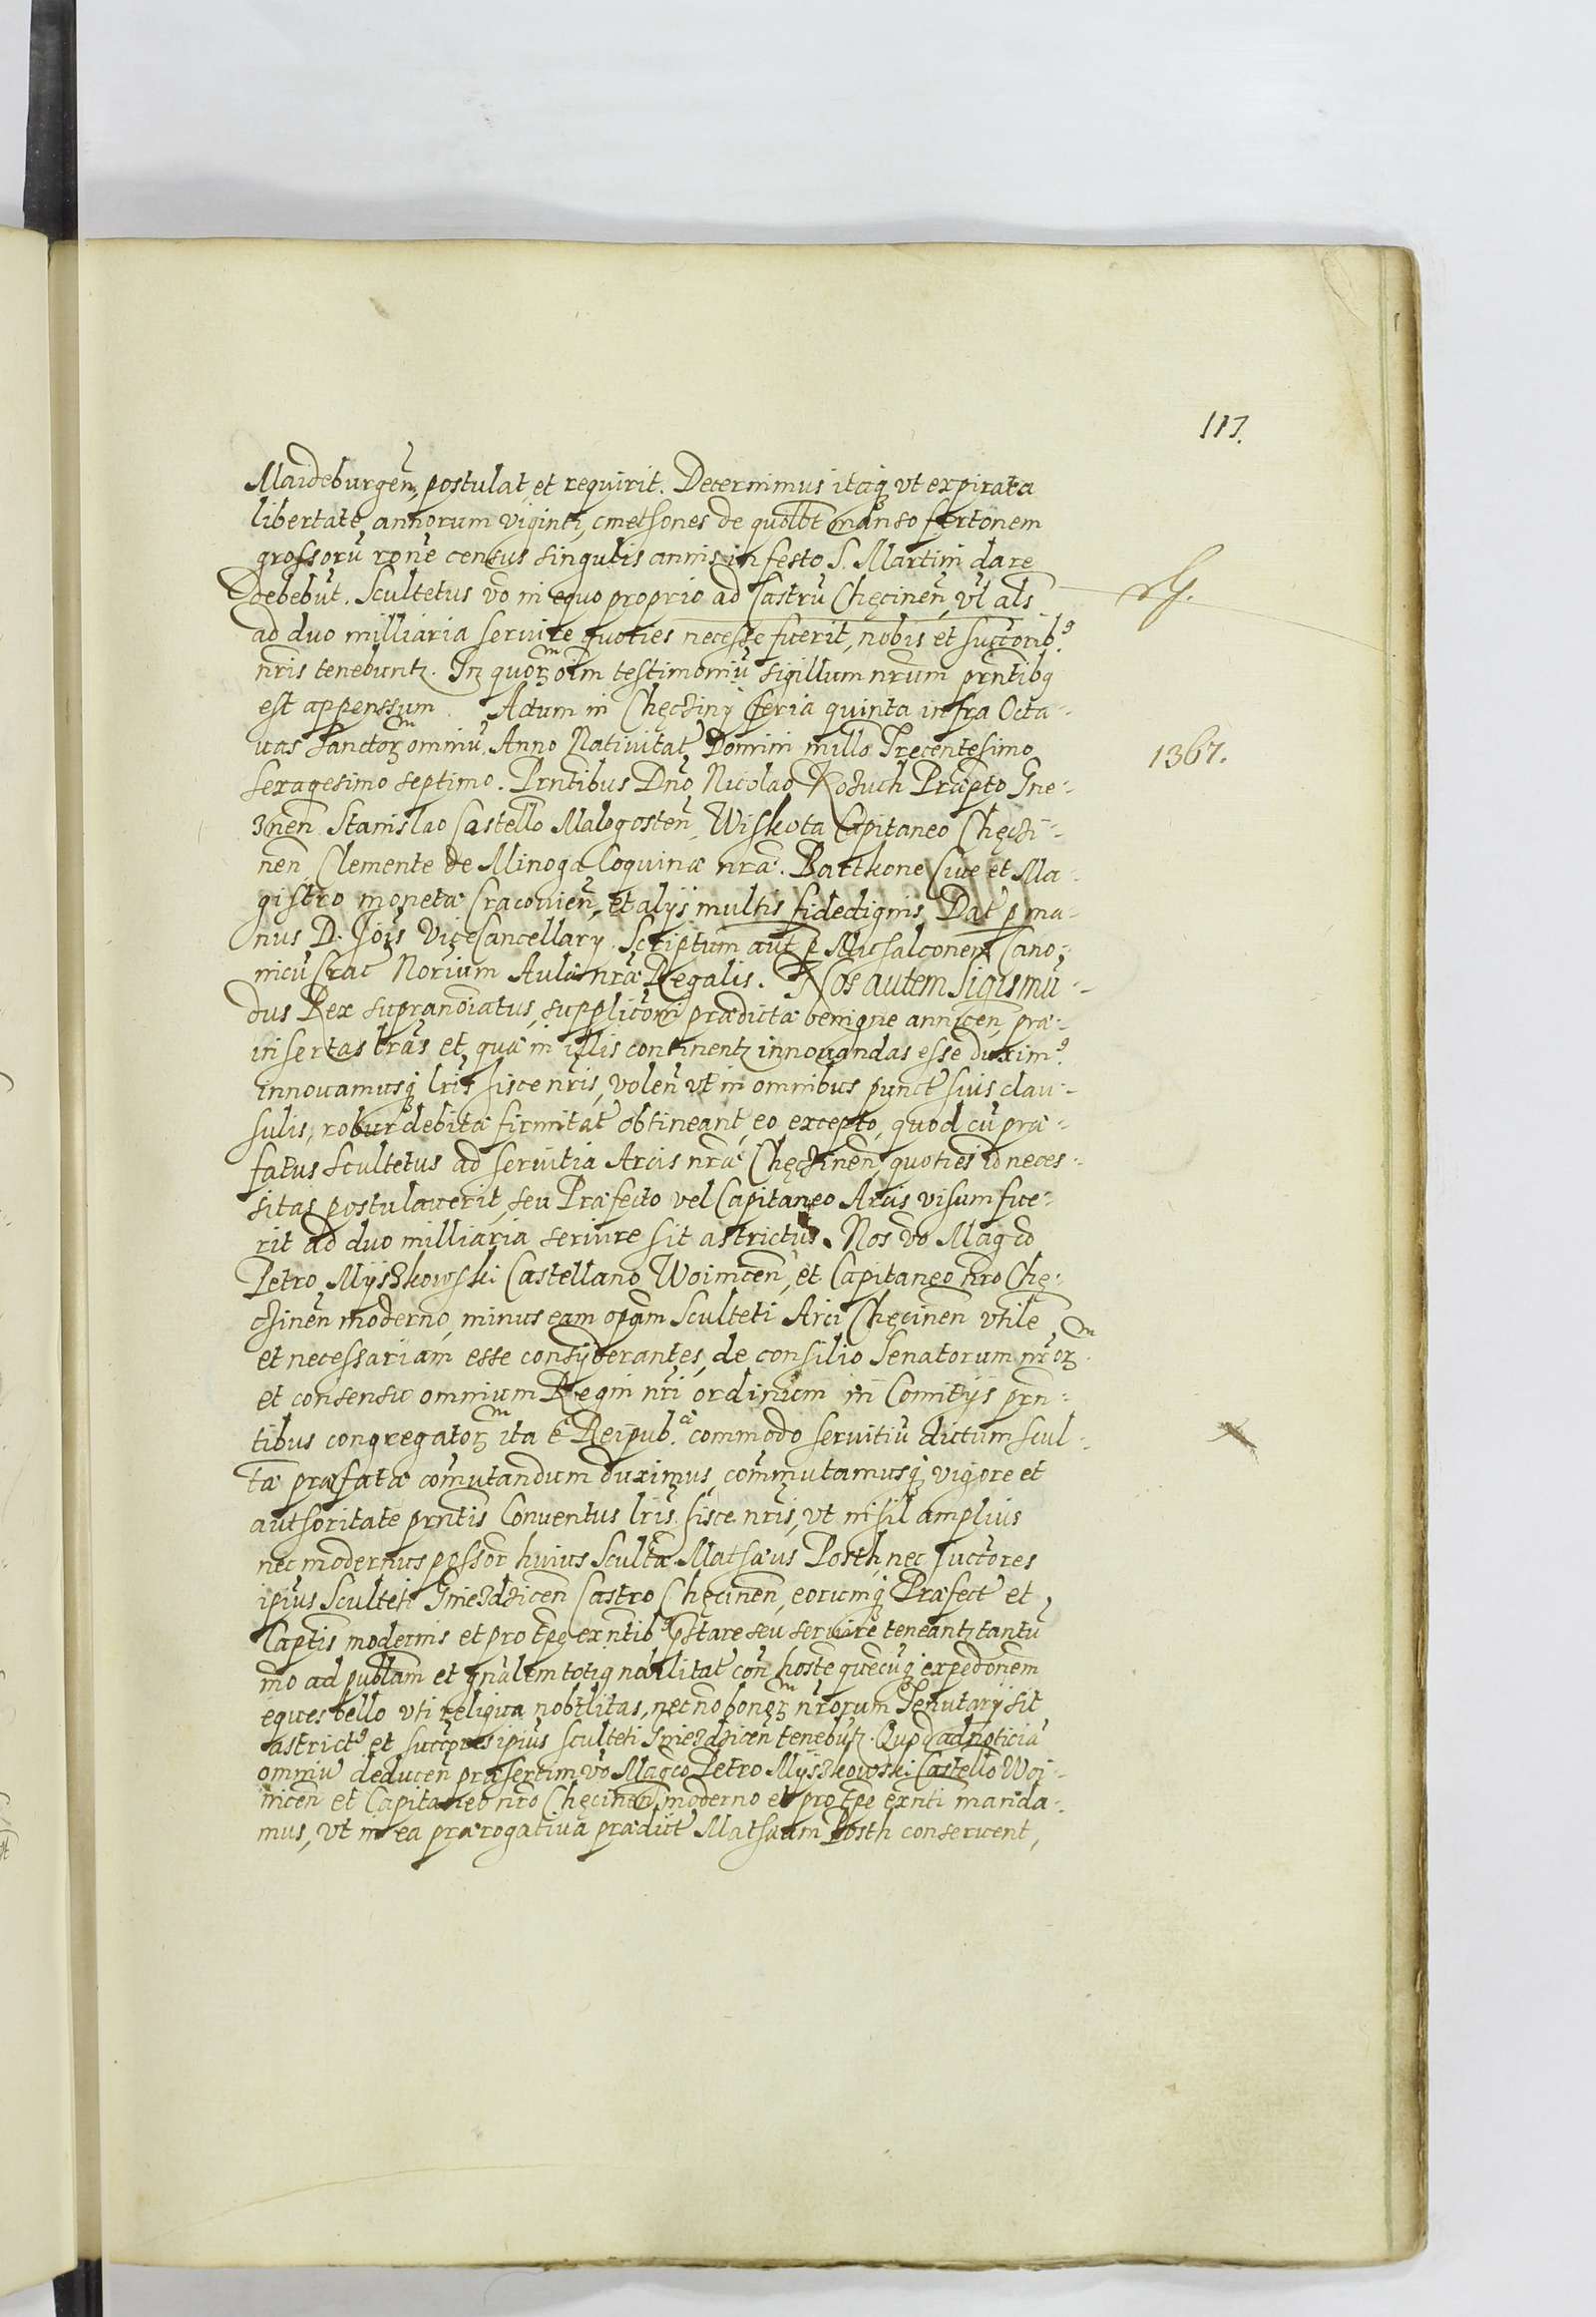 117.
Maideburgen, postulat et requirit. Decernimus itaq ut expirata
libertate annorum viginti, cmethones de quolbt manso fertonem
grossorū rone census singulis annis in festo S. Martini dare
debebūt. Scultetus vo in equo proprio ad Castrū Chęcinen, vl als
ad duo milliaria seruire quoties necesse fuerit, nobis et succorib9
nris tenebuntz. In quorz oīm testimoniū sigillum nrum prntibq
est appenssum. Actum in Chęcziny feria quinta infra Octa-
uas Sanctorz omniū. Anno Natiuitat Domini millo Trecentesimo
1367.
sexagesimo septimo. Prntibus Dno Nicolao Kozuch Præpto Gne-
znen. Stanislao Castello Malogosten, Wiskota Capitaneo Chęczi-
nen, Clemente de Minoga Coquinæ nræ. Bartkone Ciue et Ma-
gistro monetæ Cracouien, et alijs multis fidedignis. Dat p ma-
nus D. Jois ViceCancellary. Scriptum aut p Michalconem Cano-
nicū Crac Norium Aulæ nræ Regalis. Nos autem Sigismū-
dus Rex supranoiatus, supplicōni prædictæ benigne annuen, præ-
insertas lras et quæ in illis continentz innouandas esse duxim9.
innouamusq lris hisce nris, volen vt in omnibus punct suis clau-
sulis, robur debitæ firmitat obtineant, eo excepto, quod cū præ-
fatus scultetus ad seruitia Arcis nræ Chęczinen, quoties id neces-
sitas postulauerit, seu Præfecto vel Capitaneo Arcis visum fue-
rit ad duo milliaria seruire sit astrictus. Nos vo Mag co
Petro Myszkowski Castellano Woinicen, et Capitaneo nro Chę-
czinen moderno, minus eam opam Sculteti Arci Chęcinen vtile
et necessariam esse consyderantes, de consilio Senatorum nrorz
et consensu omnium Regni nri ordinum in Comitijs prn-
tibus congregatorz ita e Reipub. commodo seruitiū dictum scul-
tæ præfatæ comutandum duximus, commutamusq vigore et
authoritate prntis Conuentus lris hisce nris, vt nihil amplius
nec modernus possor huius Scultæ Mathæus Posth, nec succores
ipius Sculteti Gniezdzicen Castro Chęcinen, eorumq Præfect et
Captis modernis et pro tpe exntib9 pstare seu seruire teneantz tantū
mo ad publam et gnalem totiq nobilitat con hoste quecuq expedonem
eques bello vti reliqua nobilitas, nec no bonorz nrorum Tenutarij sit
astrict9 et succores ipius sculteti Gniezdzicen tenebūtz. Quod ad noticiā
omniū deducen præsertim vo Magco Petro Myszkowski Castello Woi-
nicen et Capitaneo nro Chęcinen moderno et pro tpe exnti manda-
mus, vt in ea prærogatiua prædict Mathæum Posth conseruent,